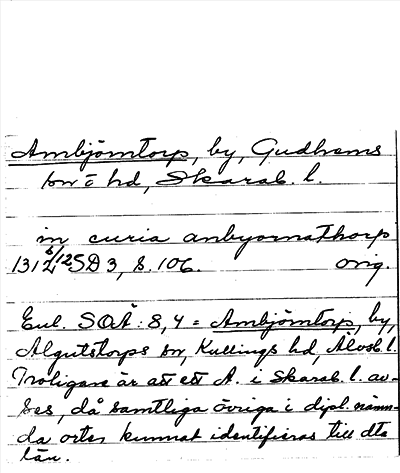 Ambjörntorp, by, Gudhems
sn o hd, Skarab. l.
in curia anbyornathorp
1312 6/12 SD 3, S. 106. orig.
Enl. SOÄ: 8, 4 = Ambjörntorp, by,
Algutstorps sn, Kullings hd, Älvsb. l.
Troligare är att ett A. i Skarab. l. av-
ses, då samtliga övriga i dipl. nämn-
da orter kunnat identifieras till dta
län.